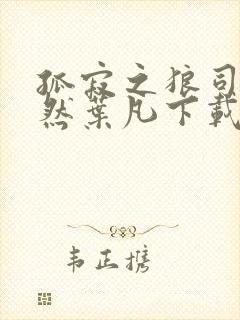 孤寂之狼司
然葉凡下載
韦正携